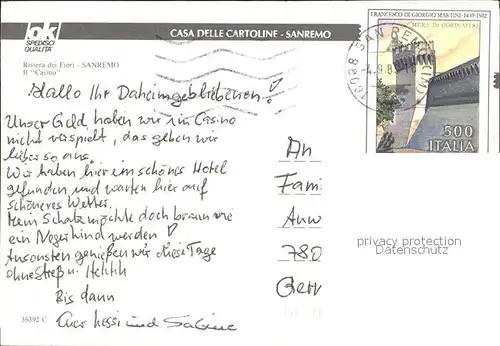 ok
SPEDISCI
QUALITÀ
CASA DELLE CARTOLINE - SANREMO
FRANCESCO DI GIORGIO MARTINI · 1439-1502
Riviera dei Fiori - SANREMO
Il "Casino"
SANREMO
4.9.8
18038
500
ITALIA
Hallo Ihr Daheimgebliebenen!
Unser Geld haben wir im Casino
nicht verspielt, das geben wir
lieber so aus.
Wir haben hier ein schönes Hotel
gefunden und warten hier auf
schöneres Wetter.
Mein Schatz möchte doch braun wie
ein Negerkind werden
Ansonsten genießen wir diese Tage
ohne Streß u. Hektik
Bis dann
Euer Hessi und Sabine
An
Fam
Anw
780
privacy protection
Datenschutz
36392 C